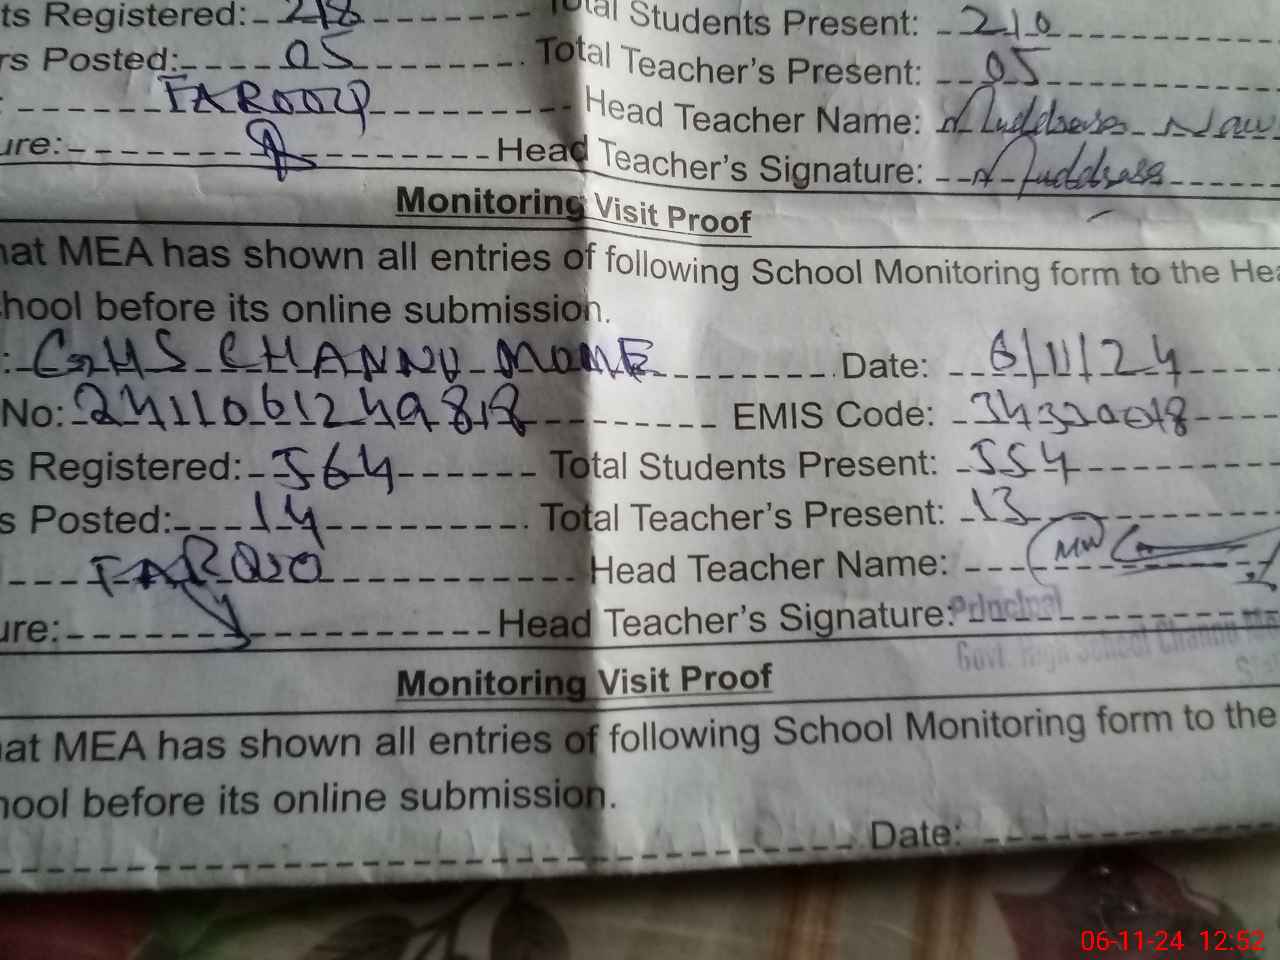 ts Registered: 218 Total Students Present: 210
rs Posted: 05 Total Teacher's Present: 05
: FAROOQ Head Teacher Name: Muddsess Naw
ure: Head Teacher's Signature: Muddsess
Monitoring Visit Proof
hat MEA has shown all entries of following School Monitoring form to the Hea
hool before its online submission.
: GHS CHANNU MOME Date: 6/11/24
No: 2411061249818 EMIS Code: 34320018
s Registered: 564 Total Students Present: 554
s Posted: 14 Total Teacher's Present: 13
FAROO Head Teacher Name:
ure: Head Teacher's Signature: Principal
Govt. High School Channu
Monitoring Visit Proof
hat MEA has shown all entries of following School Monitoring form to the
hool before its online submission.
Date:
06-11-24 12:52